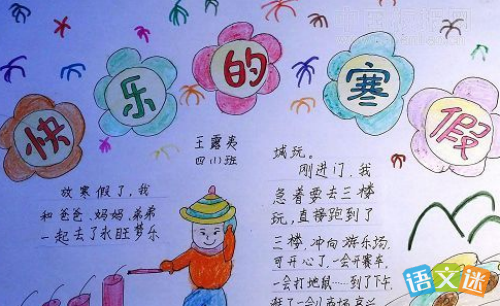 快乐的寒假
四(1)班
放寒假了,我
和爸爸、妈妈、弟弟
一起去了永旺梦乐
城玩。
刚进门,我
急着要去三楼
玩,直接跑到了
三楼,冲向游乐场,
可开心了,一会开赛车,
一会打地鼠……到了下午
语文迷